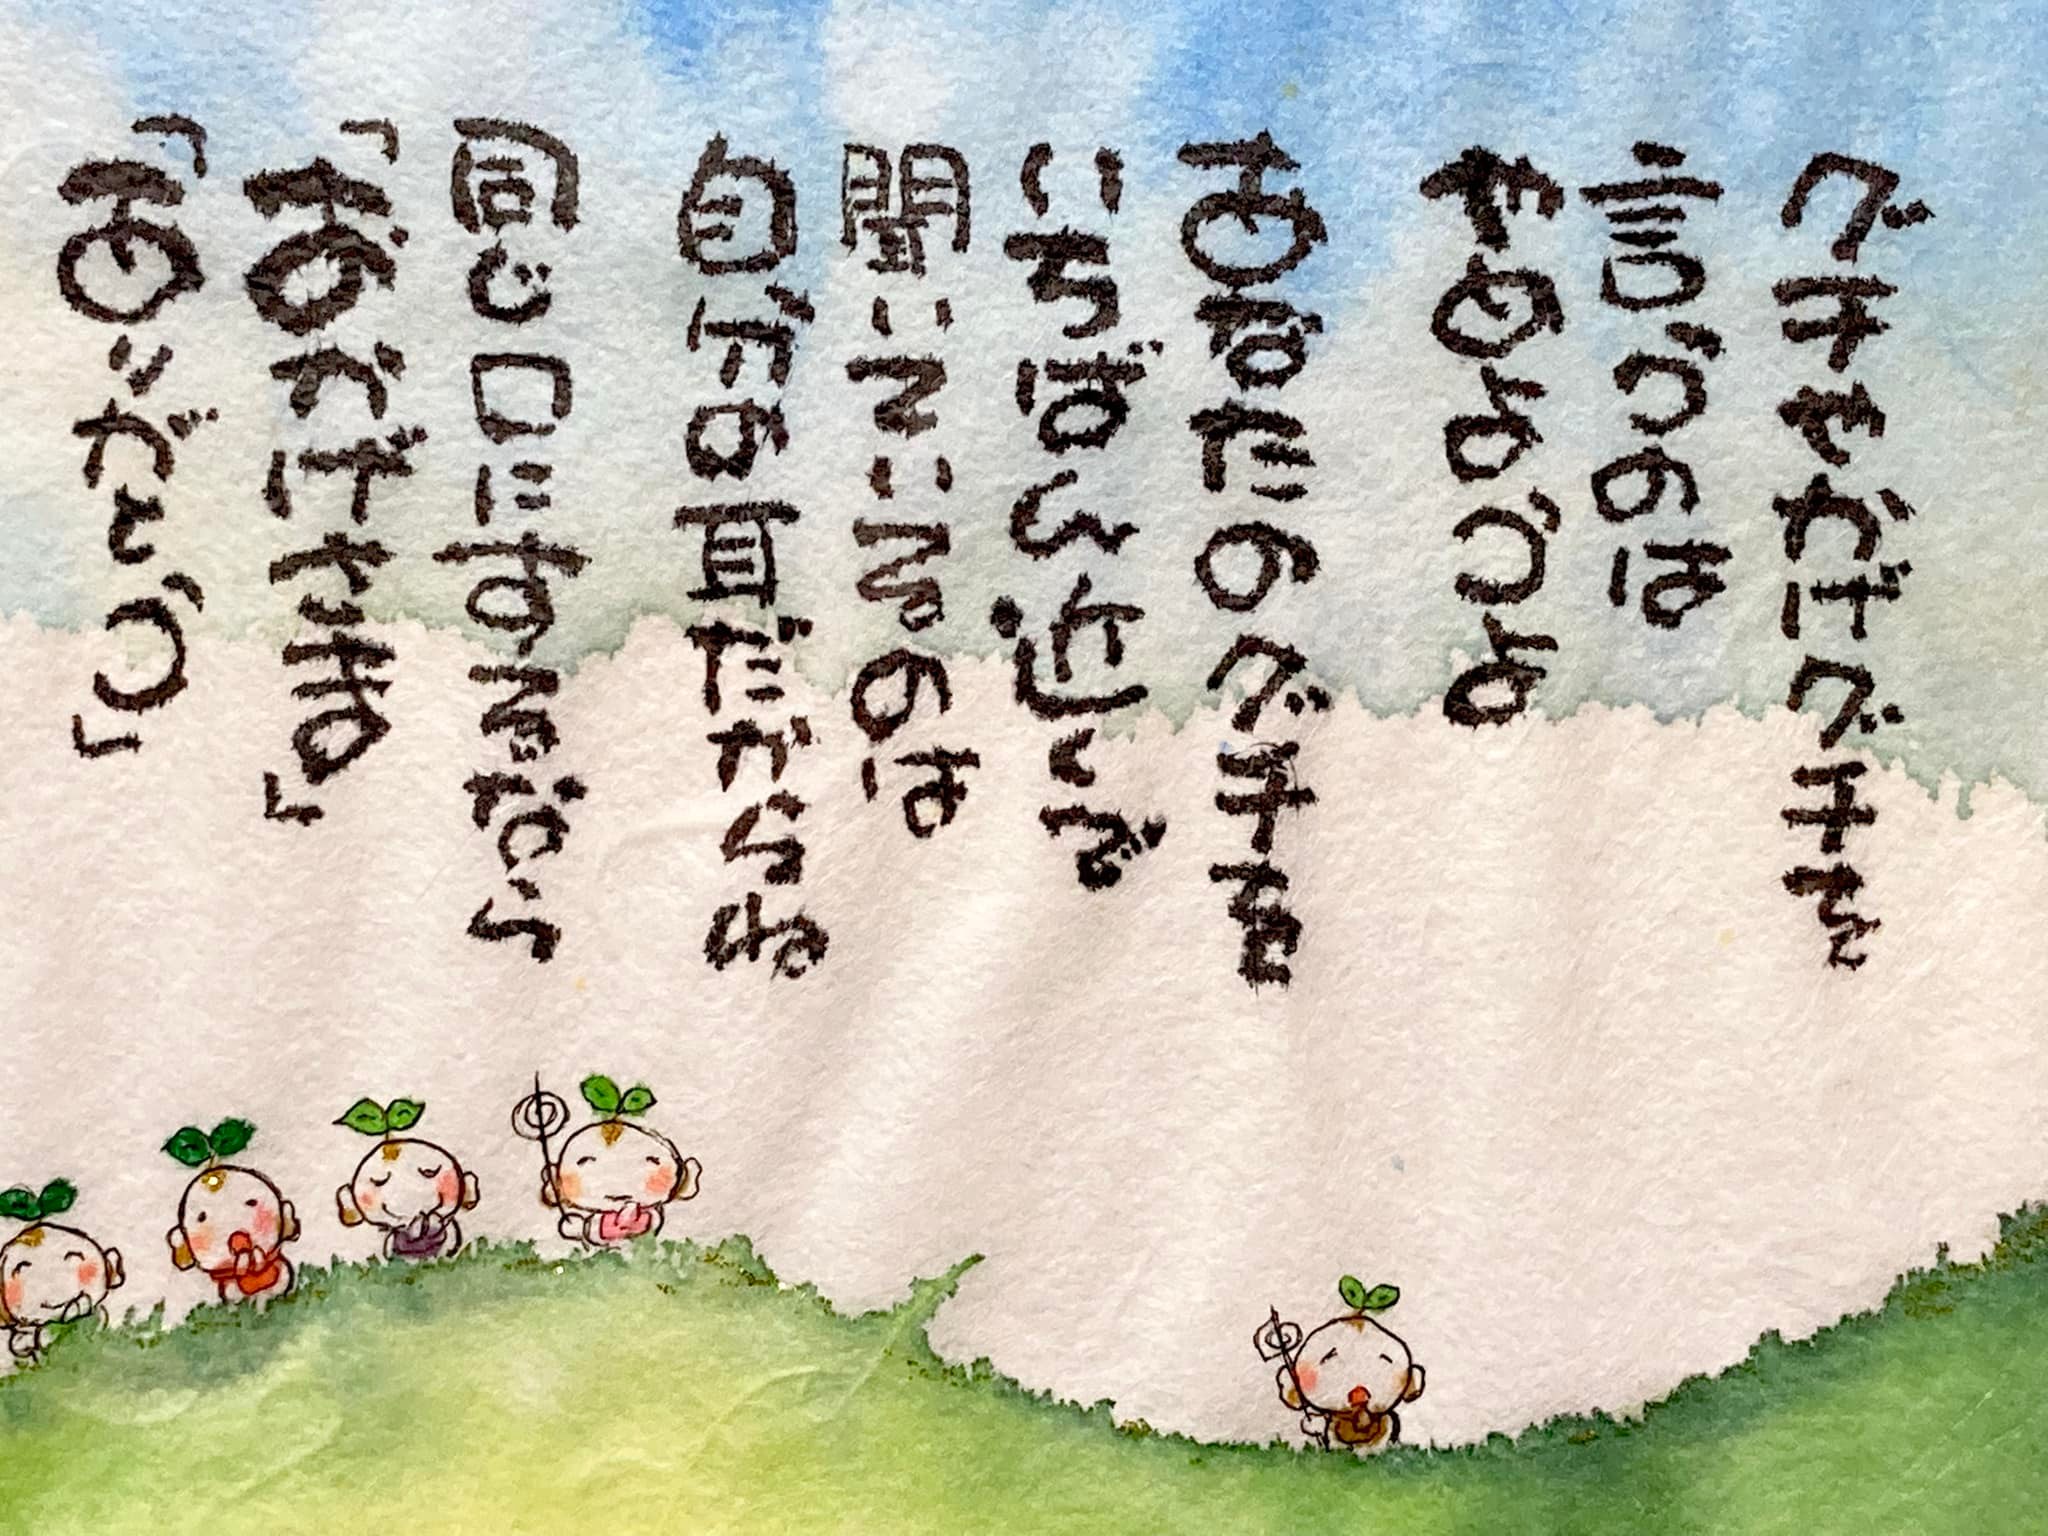 グチやかげグチを
言うのは
やめようよ
あなたのグチを
いちばん近くで
聞いているのは
自分の耳だからね
同じ口にするなら
「おかげさま」
「ありがとう」